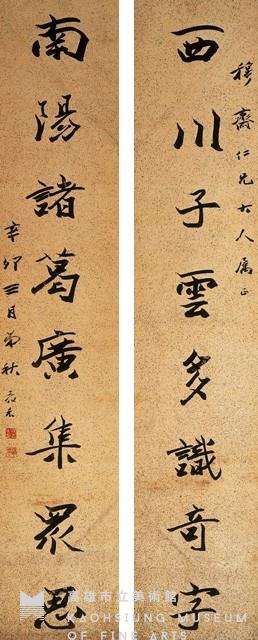 穆齋仁兄大人屬正
西川子雲多識奇字
南陽諸葛廣集眾思
辛卯三月
高雄市立美術館
KAOHSIUNG MUSEUM
OF FINE ARTS